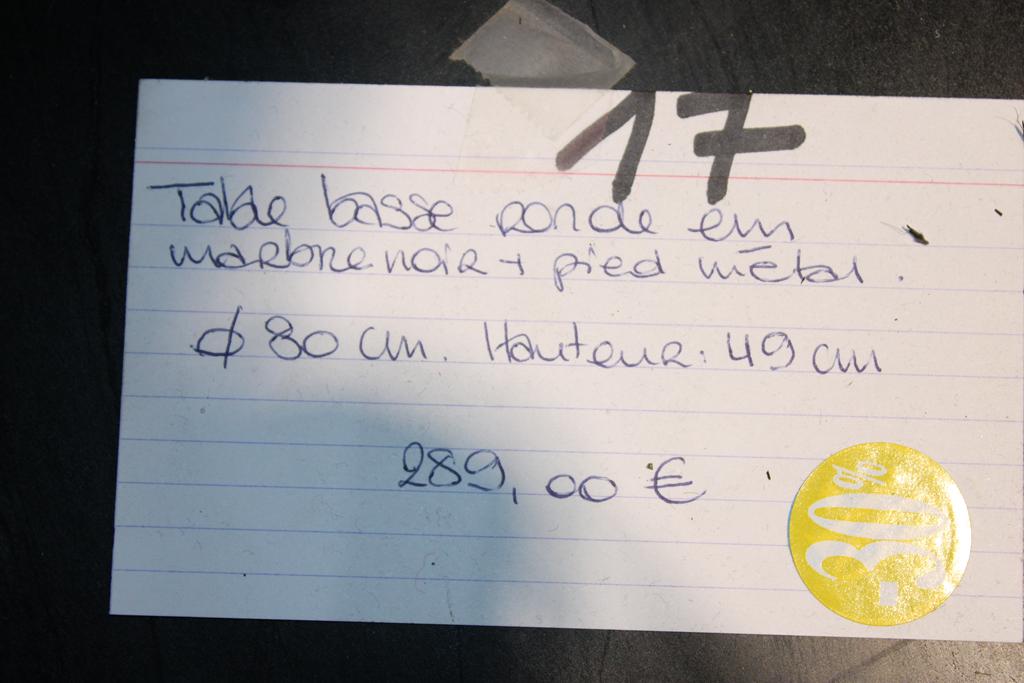 17
Table basse ronde en
marbre noir + pied métal.
ϕ 80 cm. Hauteur: 49 cm
289,00 €
-30%